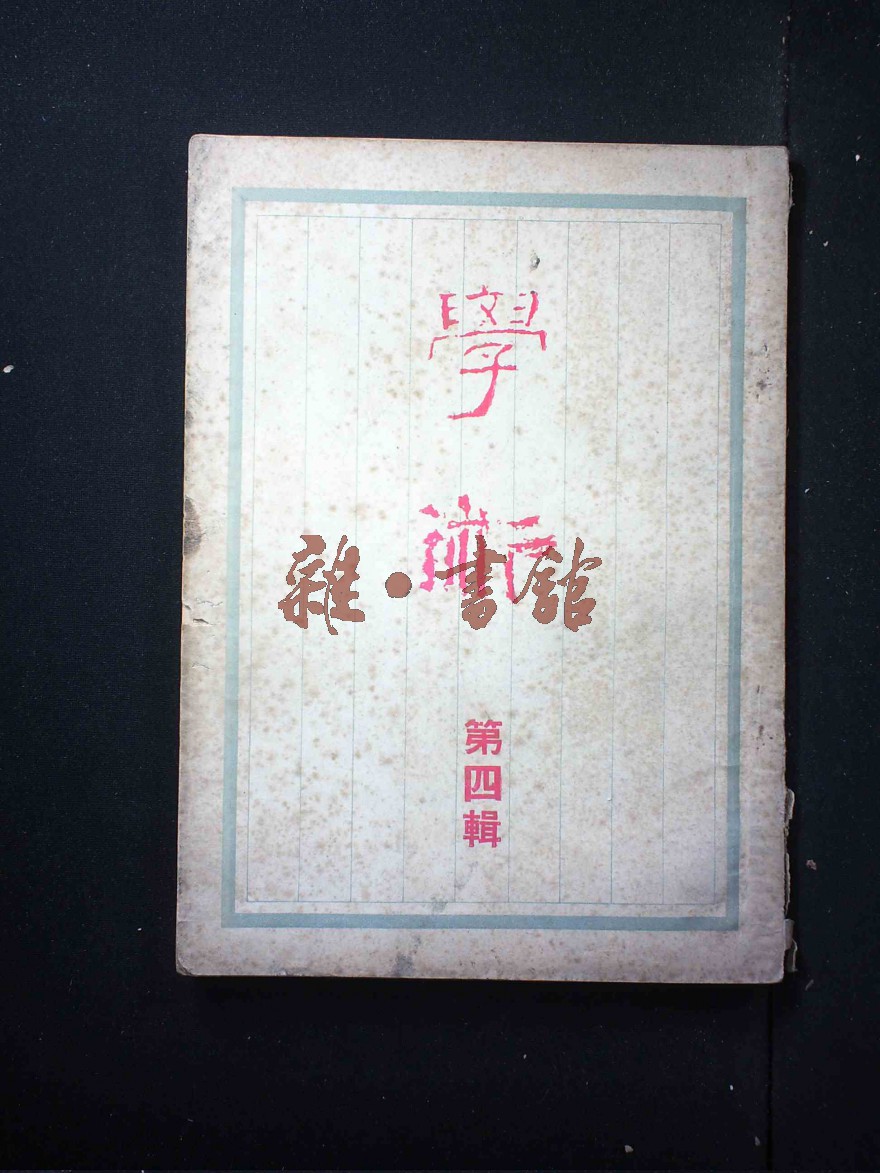 學術
第四輯
雜·書館